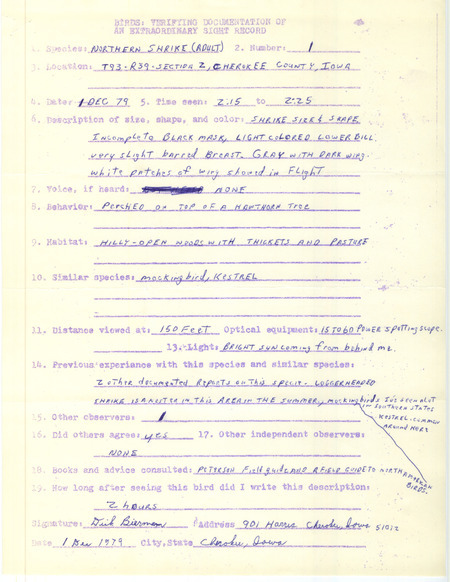 BIRDS: VERIFYING DOCUMENTATION OF
AN EXTRAORDINARY SIGHT RECORD
1. Species: NORTHERN SHRIKE (ADULT) 2. Number: 1
3. Location: T93-R39-SECTION 2, CHEROKEE COUNTY, IOWA
4. Date: 1 DEC 79 5. Time seen: 2:15 to 2:25
6. Description of size, shape, and color: SHRIKE SIZE & SHAPE
INCOMPLETE BLACK MASK, LIGHT COLORED LOWER BILL
VERY SLIGHT BARRED BREAST. GRAY WITH DARK WING.
WHITE PATCHES OF WING SHOWED IN FLIGHT
7. Voice, if heard: NONE
8. Behavior: PERCHED ON TOP OF A HAWTHORN TREE
9. Habitat: HILLY-OPEN WOODS WITH THICKETS AND PASTURE
10. Similar species: mockingbird, KESTREL
11. Distance viewed at: 150 FEET Optical equipment: 15 TO 60 POWER spotting scope.
13. Light: BRIGHT SUN coming from behind me.
14. Previous experience with this species and similar species:
2 other documented Reports on this specie - LOGGERHEADED
SHRIKE IS A NESTER IN THIS AREA IN THE SUMMER, mockingbirds I've seen alot
IN SOUTHERN STATES
KESTREL-COMMON
AROUND HERE
15. Other observers: 1
16. Did others agree: yes 17. Other independent observers:
NONE
18. Books and advice consulted: PETERSON Field guide AND A FIELD GUIDE TO NORTH AMERICAN
BIRDS.
19. How long after seeing this bird did I write this description:
2 hours
Signature: Dick Bierman Address 901 Harris Cherokee, Iowa 51012
Date 1 Dec 1979 City, State Cherokee, Iowa